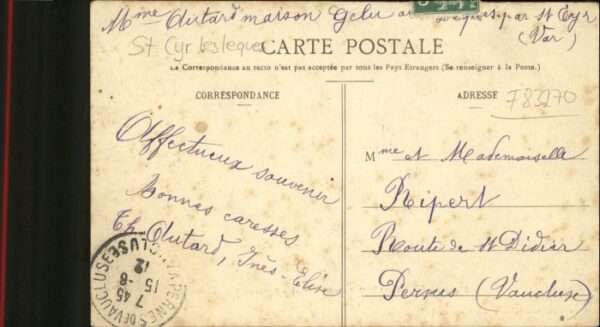 Mme Autard maison Gelu aux Lèques par St Cyr
(Var)
St Cyr les leques
CARTE POSTALE
La Correspondance au recto n'est pas acceptée par tous les Pays Etrangers (Se renseigner à la Poste.)
CORRESPONDANCE
Affectueux souvenir
Bonnes caresses
Th. Autard, Inès-Elise
ADRESSE
F83270
Mme et Mademoiselle
Ripert
Route de St Didier
Pernes (Vaucluse)
PERNES VAUCLUSE
7 45
15 -8
12